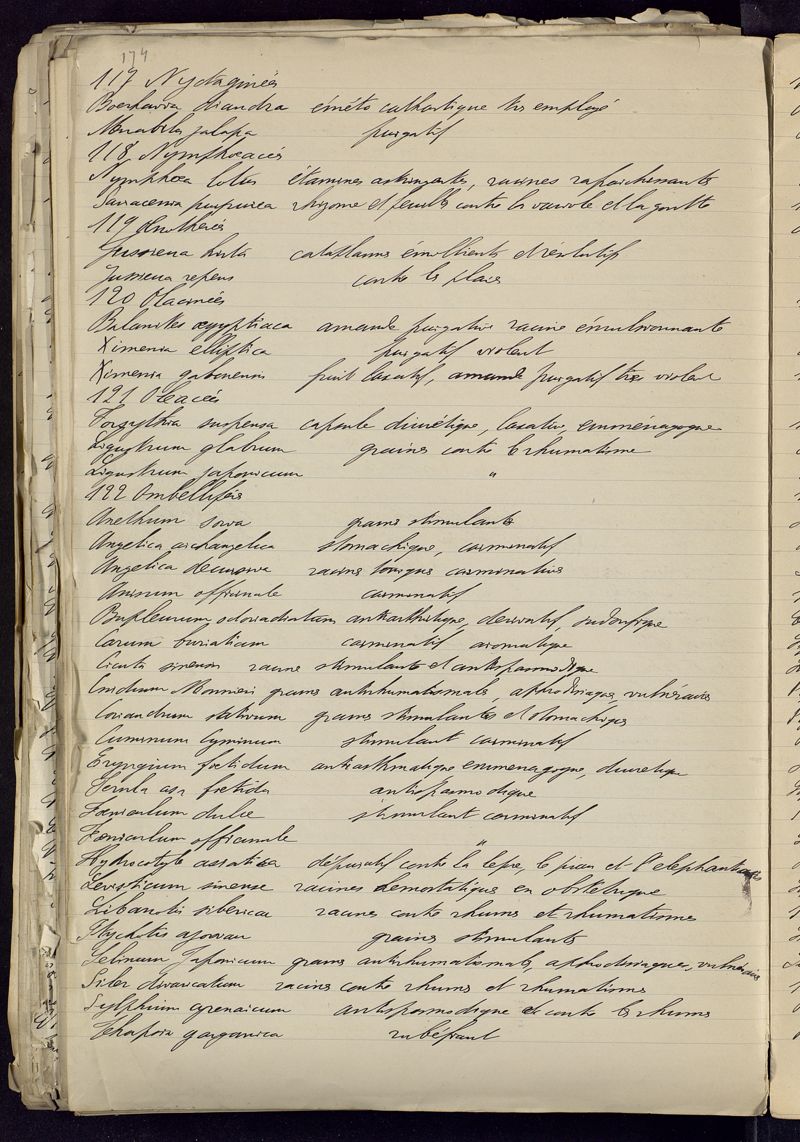 174
117 Nyctaginées
Boerhavia diandra éméto cathartique très employé
Mirabilis jalapa purgatif
118 Nymphoeacées
Nymphoea lotus étamines astringentes, racines rafraichissantes
Sarracenia purpurea rhizome et feuilles contre la variole et la goutte
119 Onothérées
Jussioena hirta cataplasmes émollients et résolutifs
Jussieua repens contre les plaies
120 Olacinées
Balanites oegyptiaca amande purgative racine émulsionnante
Ximenia elliptica purgatif violent
Ximenia gabonensis fruit laxatif, amande purgatif très violent
121 Oleacées
Forsythia suspensa capsule diurétique, laxative, emménagogue
Ligustrum glabrum graines contre le rhumatisme
Ligustrum japonicum "
122 Ombellifères
Anethum sowa graines stimulantes
Angelica archangelica stomachique, carminatif
Angelica decursiva racines toniques carminatives
Anisum officinale carminatif
Bupleurum odoriadratum antiarthritique, derivatif, sudorifique
Carum buriaticum carminatif aromatique
Cicuta sinensis racine stimulante et antispasmodique
Cnidium Monnieri graines antirhumatismales, aphrodisiaques, vulnéraires
Coriandrum sativum graines stimulantes et stomachiques
Cuminum Cyminum stimulant carminatif
Eryngium foetidum antiasthmatique emmenagogue, diuretique
Ferula asa foetida antispasmodique
Foeniculum dulce stimulant carminatif
Foeniculum officinale "
Hydrocotyle asiatica dépuratif contre la lèpre, le pian et l'elephantiasis
Levisticum sinense racines hemostatiques en obstétrique
Libanotis siberica racines contre rhumes et rhumatismes
Ptychotis ajowan graines stimulants
Selinum Japonicum graines antirhumatismales, aphrodisiaques, vulnéraires
Siler divaricatum racines contre rhumes et rhumatisme
Sylphium cyrenaicum antispasmodique et contre les rhumes
Thapsia garganica rubéfiant